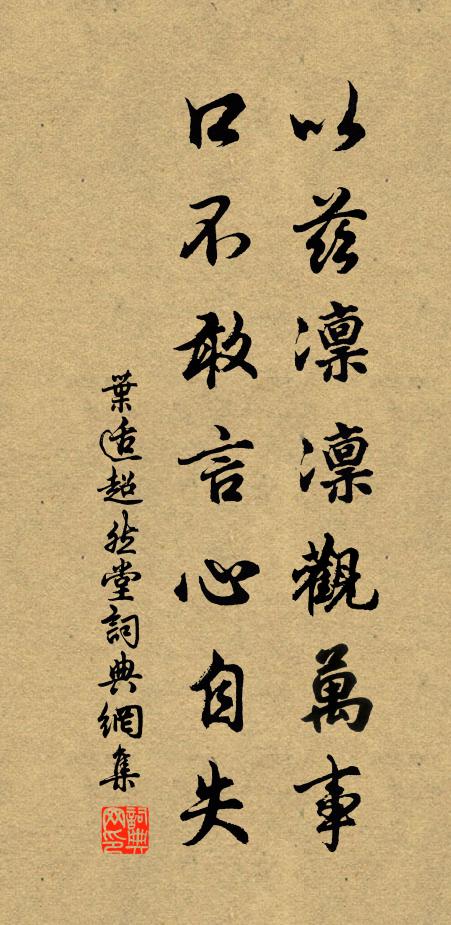 以茲凜凜觀萬事
口不敢言心自失
葉適超然堂詞典網集
詞典網印